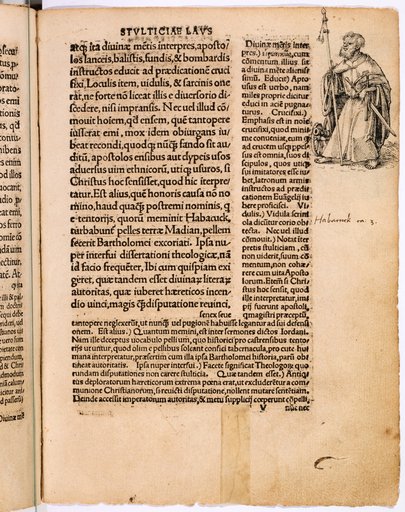 STVLTICIAE LAVS
atq; ista diuinæ mẽtis interpres, aposto/
los lanceis, balistis, fundis, & bombardis
instructos educit ad prædicationẽ cruci
fixi, Loculis item, uidulis, & sarcinis one
rat, ne forte nõ liceat illis e diuersorio di
scedere, nisi impransis. Nec uel illud cõ/
mouit hoĩem, qd ensem, quẽ tantopere
iusserat emi, mox idem obiurgans iu/
beat recondi, quodq; nũq̃ fando sit au
ditũ, apostolos ensibus aut clypeis usos
aduersus uim ethnicorũ, utiq; usuros, si
Christus hoc sensisset, quod hic iterpre/
tatur. Est alius, quẽ honoris causa nõ no
mĩno, haud quaq̃ postremi nominis, q
e tentorijs, quorũ meminit Habacuck,
turbabunt pelles terræ Madian, pellem
fecerit Bartholomei excoriati. Ipsa nu/
per interfui dissertationi theologicæ, nã
id facio frequẽter, Ibi cum quispiam exi
geret, quæ tandem esset diuinæ literæ
autoritas, quæ iuberet hæreticos incen/
dio uinci, magis q̃ disputatione reuinci,
senex seue
Diuinæ mẽtis inter
pres.)
cõmentum illius sit
a diuina mẽte dissen
tissimũ. Educit) Apto
usus est uerbo, nam
miles proprie dicitur
educi in aciẽ pugna
turus. Crucifixi.)
Emphasis est in noĩe
crucifixi, quod minĩ
me conuenit, cum q
ad crucẽm usq; pes
sus est omnia, suos di
scipulos, quos utiq;
sui imitatores esse iu
bet, latronum armis
instructos ad prædi
cationem Euãgelij iu
bere proficisci. Vi/
dulis.) Vidula scrini
ola dicũtur corio obte
cta. Nec uel illud
cõmouit.) Notat iter
pretis stulticiam, cũ
non uiderit, suum cõ
mentum, non cohæ/
rere cum uita Aposto
lorum. Etenĩ si Chri
stus hoc sensit, quod
ille interpretatur, im
pij fuerunt apostoli,
q magistri præceptũ,
Habacuck ca: 3.
tantopere neglexerĩt, ut nunq̃ uel pugionẽ habuisse legantur ad sui defensi
onem. Est alius.) Quantum memini, est inter sermones dictos Iordani.
Nam ille deceptus uocabulo pellium, quo historici pro castrensibus tento
rijs utuntur, quod olim e pellibus soleant confici tabernacula, pro cute hu/
mana interpretatur, præsertim cum illa ipsa Bartholomei historia, parũ ob
tineat autoritatis. Ipsa nuper interfui.) Facete significat Theologorũ quo
rundam disputationes non carere stulticia. Quæ tandem esset.) Antiq/
tus deploratorum hæreticorum extrema pœna erat, ut excluderẽtur a com
munione Christianorum, si reuicti disputatione, nollent mutare sentẽtiam.
Deinde accessit imperatorum autoritas, & metu supplicij corperunt cõpelli,
V
nuc nec